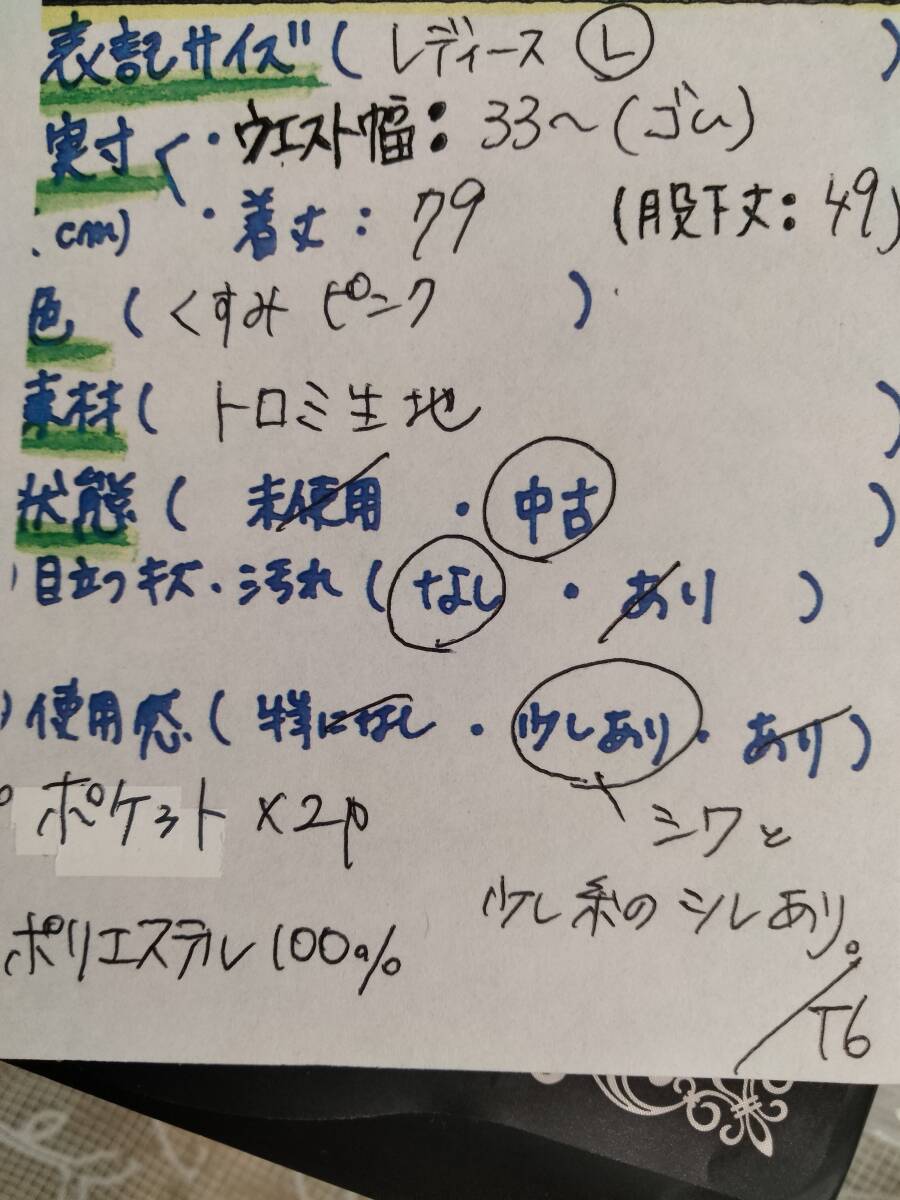 表記サイズ ( レディース L )
実寸 ・ウエスト幅: 33〜(ゴム)
cm) ・着丈: 79 (股下丈: 49)
色 ( くすみ ピンク )
素材 ( トロミ生地 )
状態 ( 未使用 ・ 中古 )
目立つキズ・汚れ ( なし ・ あり )
使用感 ( 特になし ・ 少しあり ・ あり )
ポケット ×2p
シワと
少し糸の シルあり。
ポリエステル100%
T6